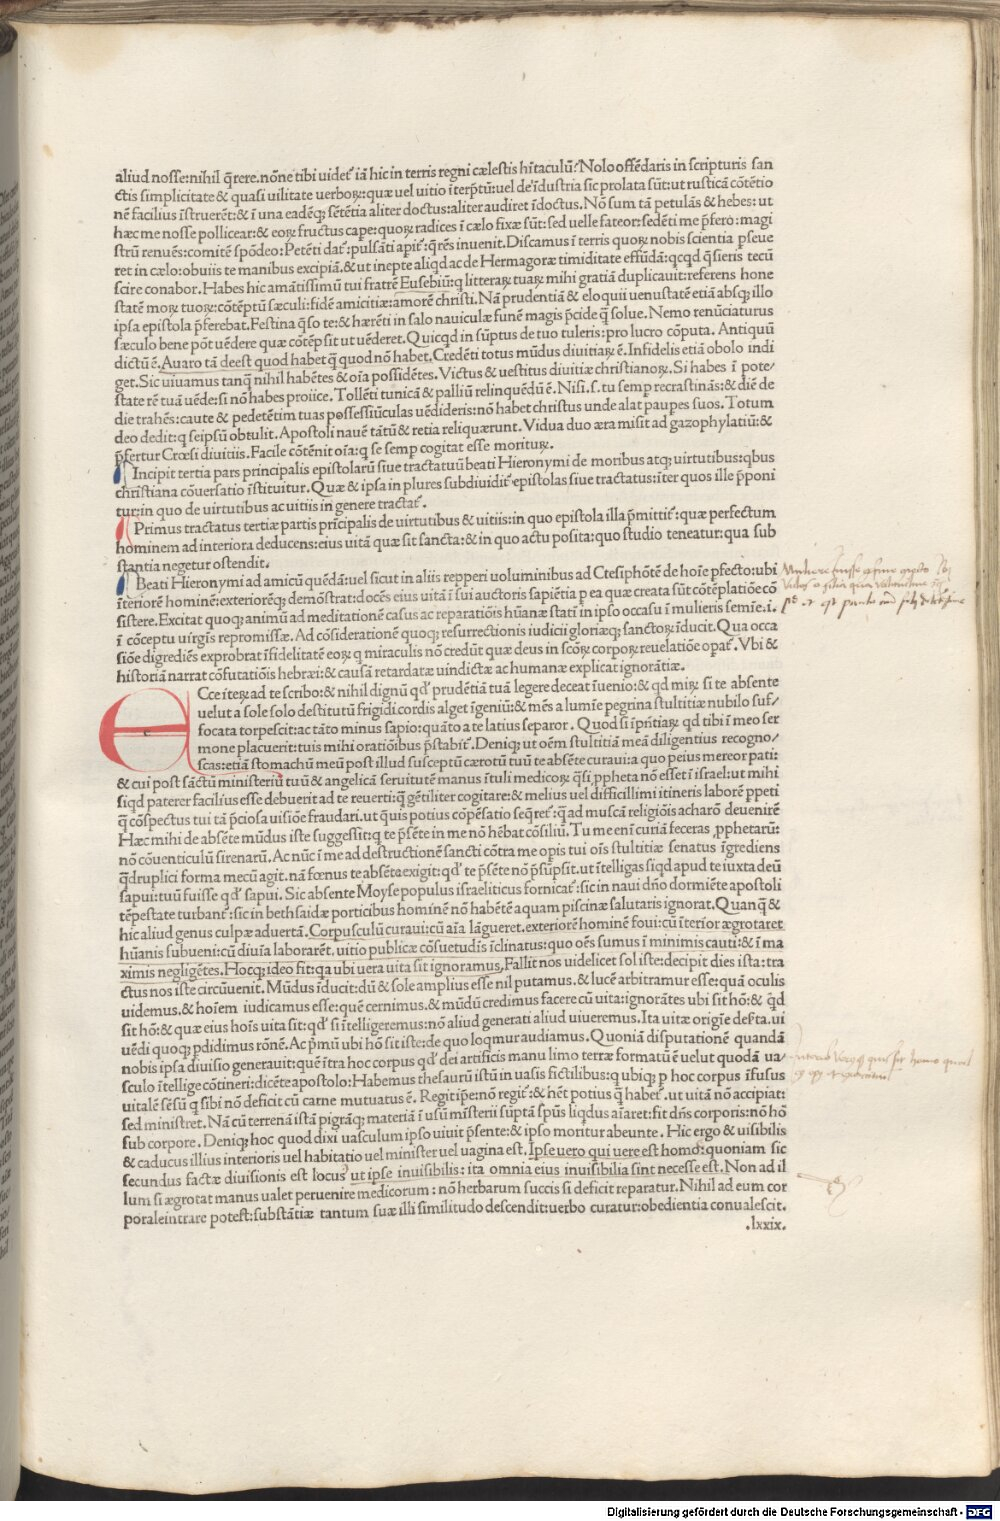 aliud nosse:nihil q̄rere.nōne tibi uidet᷑ iā hic in terris regni cælestis hītaculū? Nolo offēdaris in scripturis san
ctis simplicitate & quasi uilitate uerboꝝ:quæ uel uitio īterp̄tū:uel de īdustria sic prolata sūt:ut rusticā cōtētio
nē facilius īstruerēt:& ī una eadēqꝫ sētētia aliter doctus:aliter audiret īdoctus. Nō sum tā petulās & hebes: ut
hæc me nosse pollicear:& eoꝝ fructus cape: quoꝝ radices ī cælo fixæ sūt: sed uelle fateor: sedēti me p̄fero: magi
strū renuēs: comitē spōdeo: Petēti dat᷑: pulsāti apit᷑: q̄rēs inuenit. Discamus ī terris quoꝝ nobis scientia pseue
ret in cælo: obuiis te manibus excipiā.& ut inepte aliqd ac de Hermagoræ timiditate effūdā: qcqd q̄sieris tecū
scire conabor. Habes hic amātissimū tui fratrē Eusebiū: q litteraꝝ tuaꝝ mihi gratiā duplicauit: referens hone
statē moꝝ tuoꝝ: cōtēptū sæculi: fidē amicitiæ: amorē christi. Nā prudentiā & eloquii uenustatē etiā absqꝫ illo
ipsa epistola p̄ferebat. Festina q̄so te: & hærēti in salo nauiculæ funē magis p̄cide q̄ solue. Nemo renūciaturus
sæculo bene pōt uēdere quæ cōtēpsit ut uēderet. Quicqd in sūptus de tuo tuleris: pro lucro cōputa. Antiquū
dictū ē. Auaro tā deest quod habet q̄ quod nō habet. Credēti totus mūdus diuitiaꝝ ē. Infidelis etiā obolo indi
get. Sic uiuamus tanq̄ nihil habētes & oīa possidētes. Victus & uestitus diuitiæ christianoꝝ. Si habes ī pote/
state rē tuā uēde: si nō habes proiice. Tollēti tunicā & palliū relinquēdū ē. Nisi.s. tu semp recrastinās: & diē de
die trahēs: caute & pedetētim tuas possessiūculas uēdideris: nō habet christus unde alat paupes suos. Totum
deo dedit: q seipsū obtulit. Apostoli nauē tātū & retia reliquærunt. Vidua duo æra misit ad gazophylatiū: &
p̄fertur Crœsi diuitiis. Facile cōtēnit oīa: q se semp cogitat esse morituꝝ.
Incipit tertia pars principalis epistolarū siue tractatuū beati Hieronymi de moribus atqꝫ uirtutibus: qbus
christiana cōuersatio īstituitur. Quæ & ipsa in plures subdiuidit᷑ epistolas siue tractatus: īter quos ille p̄poni
tur: in quo de uirtutibus ac uitiis in genere tractat᷑.
Primus tractatus tertiæ partis prīcipalis de uirtutibus & uitiis: in quo epistola illa p̄mittit᷑: quæ perfectum
hominem ad interiora deducens: eius uitā quæ sit sancta: & in quo actu posita: quo studio teneatur: qua sub
stantia negetur ostendit.
Beati Hieronymi ad amicū quēdā: uel sicut in aliis repperi uoluminibus ad Ctesiphōtē de hoīe pfecto: ubi
īteriorē hominē: exteriorēqꝫ demōstrat: docēs eius uitā ī sui auctoris sapiētia p ea quæ creata sūt cōtēplatiōe cō
sistere. Excitat quoqꝫ animū ad meditationē casus ac reparatiōis hūanæ statī in ipso occasu ī mulieris semīe.i.
ī cōceptu uirgīs repromissæ. Ad cōsiderationē quoqꝫ resurrectionis iudicii gloriæqꝫ sanctoꝝ īducit. Qua occa
siōe digrediēs exprobrat īfidelitatē eoꝝ q miraculis nō credūt quæ deus in scōꝝ corpoꝝ reuelatiōe opat᷑. Vbi &
historiā narrat cōfutatiōis hebræi: & causā retardatæ uindictæ ac humanæ explicat ignorātiæ.
ECce iteꝝ ad te scribo: & nihil dignū qd᷑ prudētiā tuā legere deceat īuenio: & qd miꝝ si te absente
uelut a sole solo destitutū frigidi cordis alget īgeniū: & mēs a lumīe pegrina stultitiæ nubilo suf/
focata torpescit: ac tāto minus sapio: quāto a te latius separor. Quod si īpn̄tiaꝝ qd tibi ī meo ser
mone placuerit: tuis mihi oratiōibus p̄stabit᷑. Deniqꝫ ut oēm stultitiā meā diligentius recogno/
scas: etiā stomachū meū post illud susceptū cærotū tuū te absēte curaui: a quo peius mereor pati:
& cui post sāctū ministeriū tuū & angelicā seruitutē manus ītuli medicoꝝ: qsi ppheta nō esset ī israel: ut mihi
siqd paterer facilius esse debuerit ad te reuerti: q̄ gētiliter cogitare: & melius uel difficillimi itineris laborē ppeti
q̄ cōspectus tui tā p̄ciosa uisiōe fraudari. ut quis potius cōpēsatio seqret᷑: q̄ ad muscā religiōis acharō deuenirē
Hæc mihi de absēte mūdus iste suggessit: q te p̄sēte in me nō hēbat cōsiliū. Tu me enī curiā feceras pphetarū:
nō cōuenticulū sirenarū. Ac nūc ī me ad destructionē sancti cōtra me opis tui oīs stultitiæ senatus īgrediens
q̄druplici forma mecū agit. nā fœnus te absēte exigit: qd᷑ te p̄sēte nō p̄sūpsit. ut ītelligas siqd apud te iuxta deū
sapui: tuū fuisse qd᷑ sapui. Sic absente Moyse populus israeliticus fornicat᷑: sic in naui dño dormiēte apostoli
tēpestate turbant᷑: sic in bethsaidæ porticibus hominē nō habētē aquam piscinæ salutaris ignorat. Quanq̄ &
hic aliud genus culpæ aduertā. Corpusculū curaui: cū aīa lāgueret. exteriorē hominē foui: cū īterior ægrotaret
hūanis subueni: cū diuīa laborarēt. uitio publicæ cōsuetudīs īclinatus: quo oēs sumus ī minimis cauti: & ī ma
ximis negligētes. Hocqꝫ ideo fit: qa ubi uera uita sit ignoramus. Fallit nos uidelicet sol iste: decipit dies ista: tra
ctus nos iste circūuenit. Mūdus īducit: dū & sole amplius esse nil putamus. & lucē arbitramur esse: quā oculis
uidemus. & hoīem iudicamus esse: quē cernimus. & mūdū credimus facere cū uita: ignorātes ubi sit hō: & q̄d
sit hō: & quæ eius hoīs uita sit: qd᷑ si ītelligeremus: nō aliud generati aliud uiueremus. Ita uitæ origīe desta. ui
uēdi quoqꝫ pdidimus rōnē. Ac p̄mū ubi hō sit iste: de quo loqmur audiamus. Quoniā disputationē quandā
nobis ipsa diuisio generauit: quē ītra hoc corpus qd᷑ dei artificis manu limo terræ formatū ē uelut quodā ua/
sculo ītellige cōtineri: dicēte apostolo: Habemus thesaurū istū in uasis fictilibus: q ubiqꝫ p hoc corpus īfusus
uitalē sēsū q sibi nō deficit cū carne mutuatus ē. Regit ip̄e: nō regit᷑: & hēt potius q̄ habet᷑. ut uitā nō accipiat:
sed ministret. Nā cū terrenā istā pigrāqꝫ materiā ī usū misterii sūptā spūs liqdus aīaret: fit dn̄s corporis: nō hō
sub corpore. Deniqꝫ hoc quod dixi uasculum ipso uiuit p̄sente: & ipso moritur abeunte. Hic ergo & uisibilis
& caducus illius interioris uel habitatio uel minister uel uagina est. Ipse uero qui uere est homo: quoniam sic
secundus factæ diuisionis est locus ut ipse inuisibilis: ita omnia eius inuisibilia sint necesse est. Non ad il
lum si ægrotat manus ualet peruenire medicorum: nō herbarum succis si deficit reparatur. Nihil ad eum cor
porale intrare potest: substātiæ tantum suæ illi similitudo descendit: uerbo curatur: obedientia conualescit.
.lxxix.
Digitalisierung gefördert durch die Deutsche Forschungsgemeinschaft - DFG